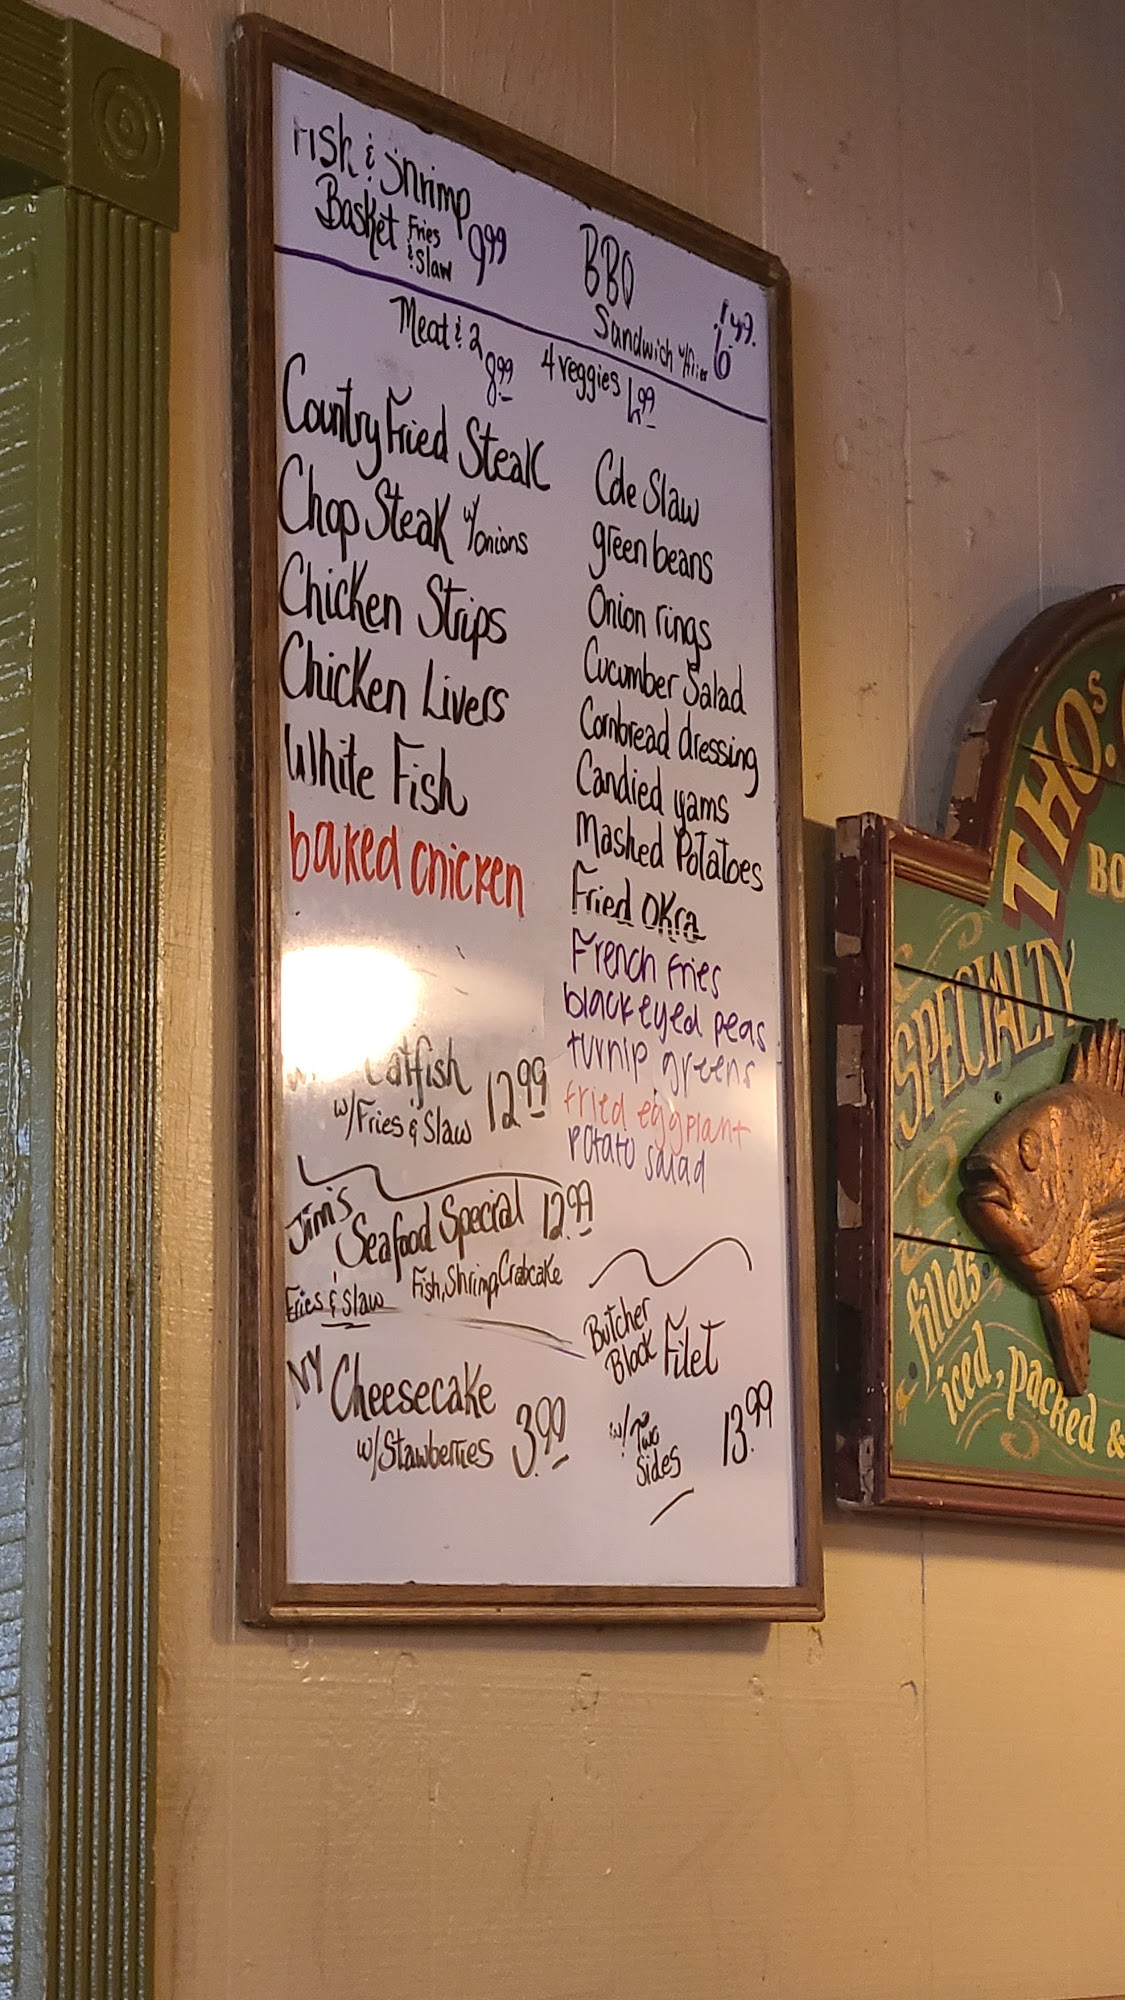 Fish & Shrimp
Basket Fries
& Slaw 9.99
BBQ
Sandwich w/fries
Meat & 2
8.99
4 veggies
Country Fried Steak
Chop Steak w/onions
Chicken Strips
Chicken Livers
White Fish
baked chicken
Cole Slaw
green beans
Onion rings
Cucumber Salad
Cornbread dressing
Candied yams
Mashed Potatoes
Fried Okra
French Fries
black eyed peas
turnip greens
fried eggplant
Potato salad
Catfish
w/Fries & Slaw 12.99
Jim's
Seafood Special 12.99
Fish, Shrimp, Crabcake
Fries & Slaw
NY Cheesecake
w/Stawberries 3.99
Butcher
Block Filet
w/Two
Sides
13.99
THOS.
BO
SPECIALTY
fillets
iced, packed &